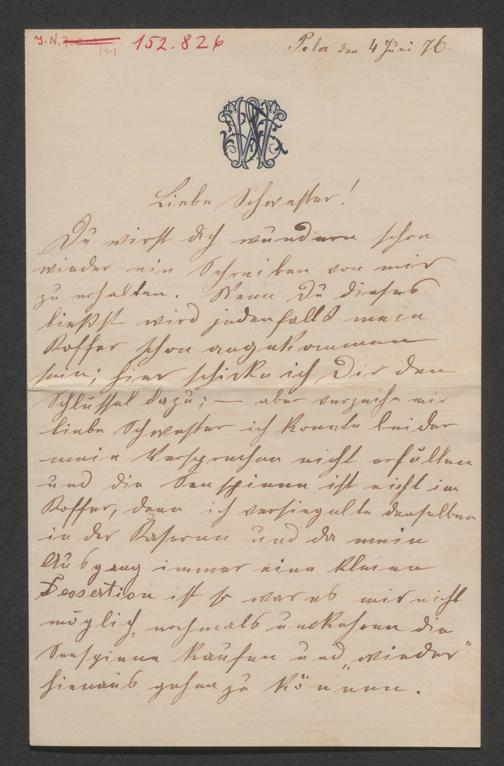 J.N. 152.826
Pola den 4 Juni 76.
W
Liebe Schwester!
Du wirst dich wundern schon
wieder ein Schreiben von mir
zu erhalten. Wenn Du dieses
ließt wird jedenfalls mein
Koffer schon angekommen
sein; hier schicke ich Dir den
Schlüssel dazu; — aber verzeihe mir
liebe Schwester ich konnte leider
mein Versprechen nicht erfüllen
und die Seespinne ist nicht im
Koffer, denn ich versiegelte denselben
in der Kaserne und da mein
Ausgang immer eine kleine
Dessertion ist so war es mir nicht
möglich, nochmals umkehren die
Seespinne kaufen und „wieder"
hinaus gehen zu können.